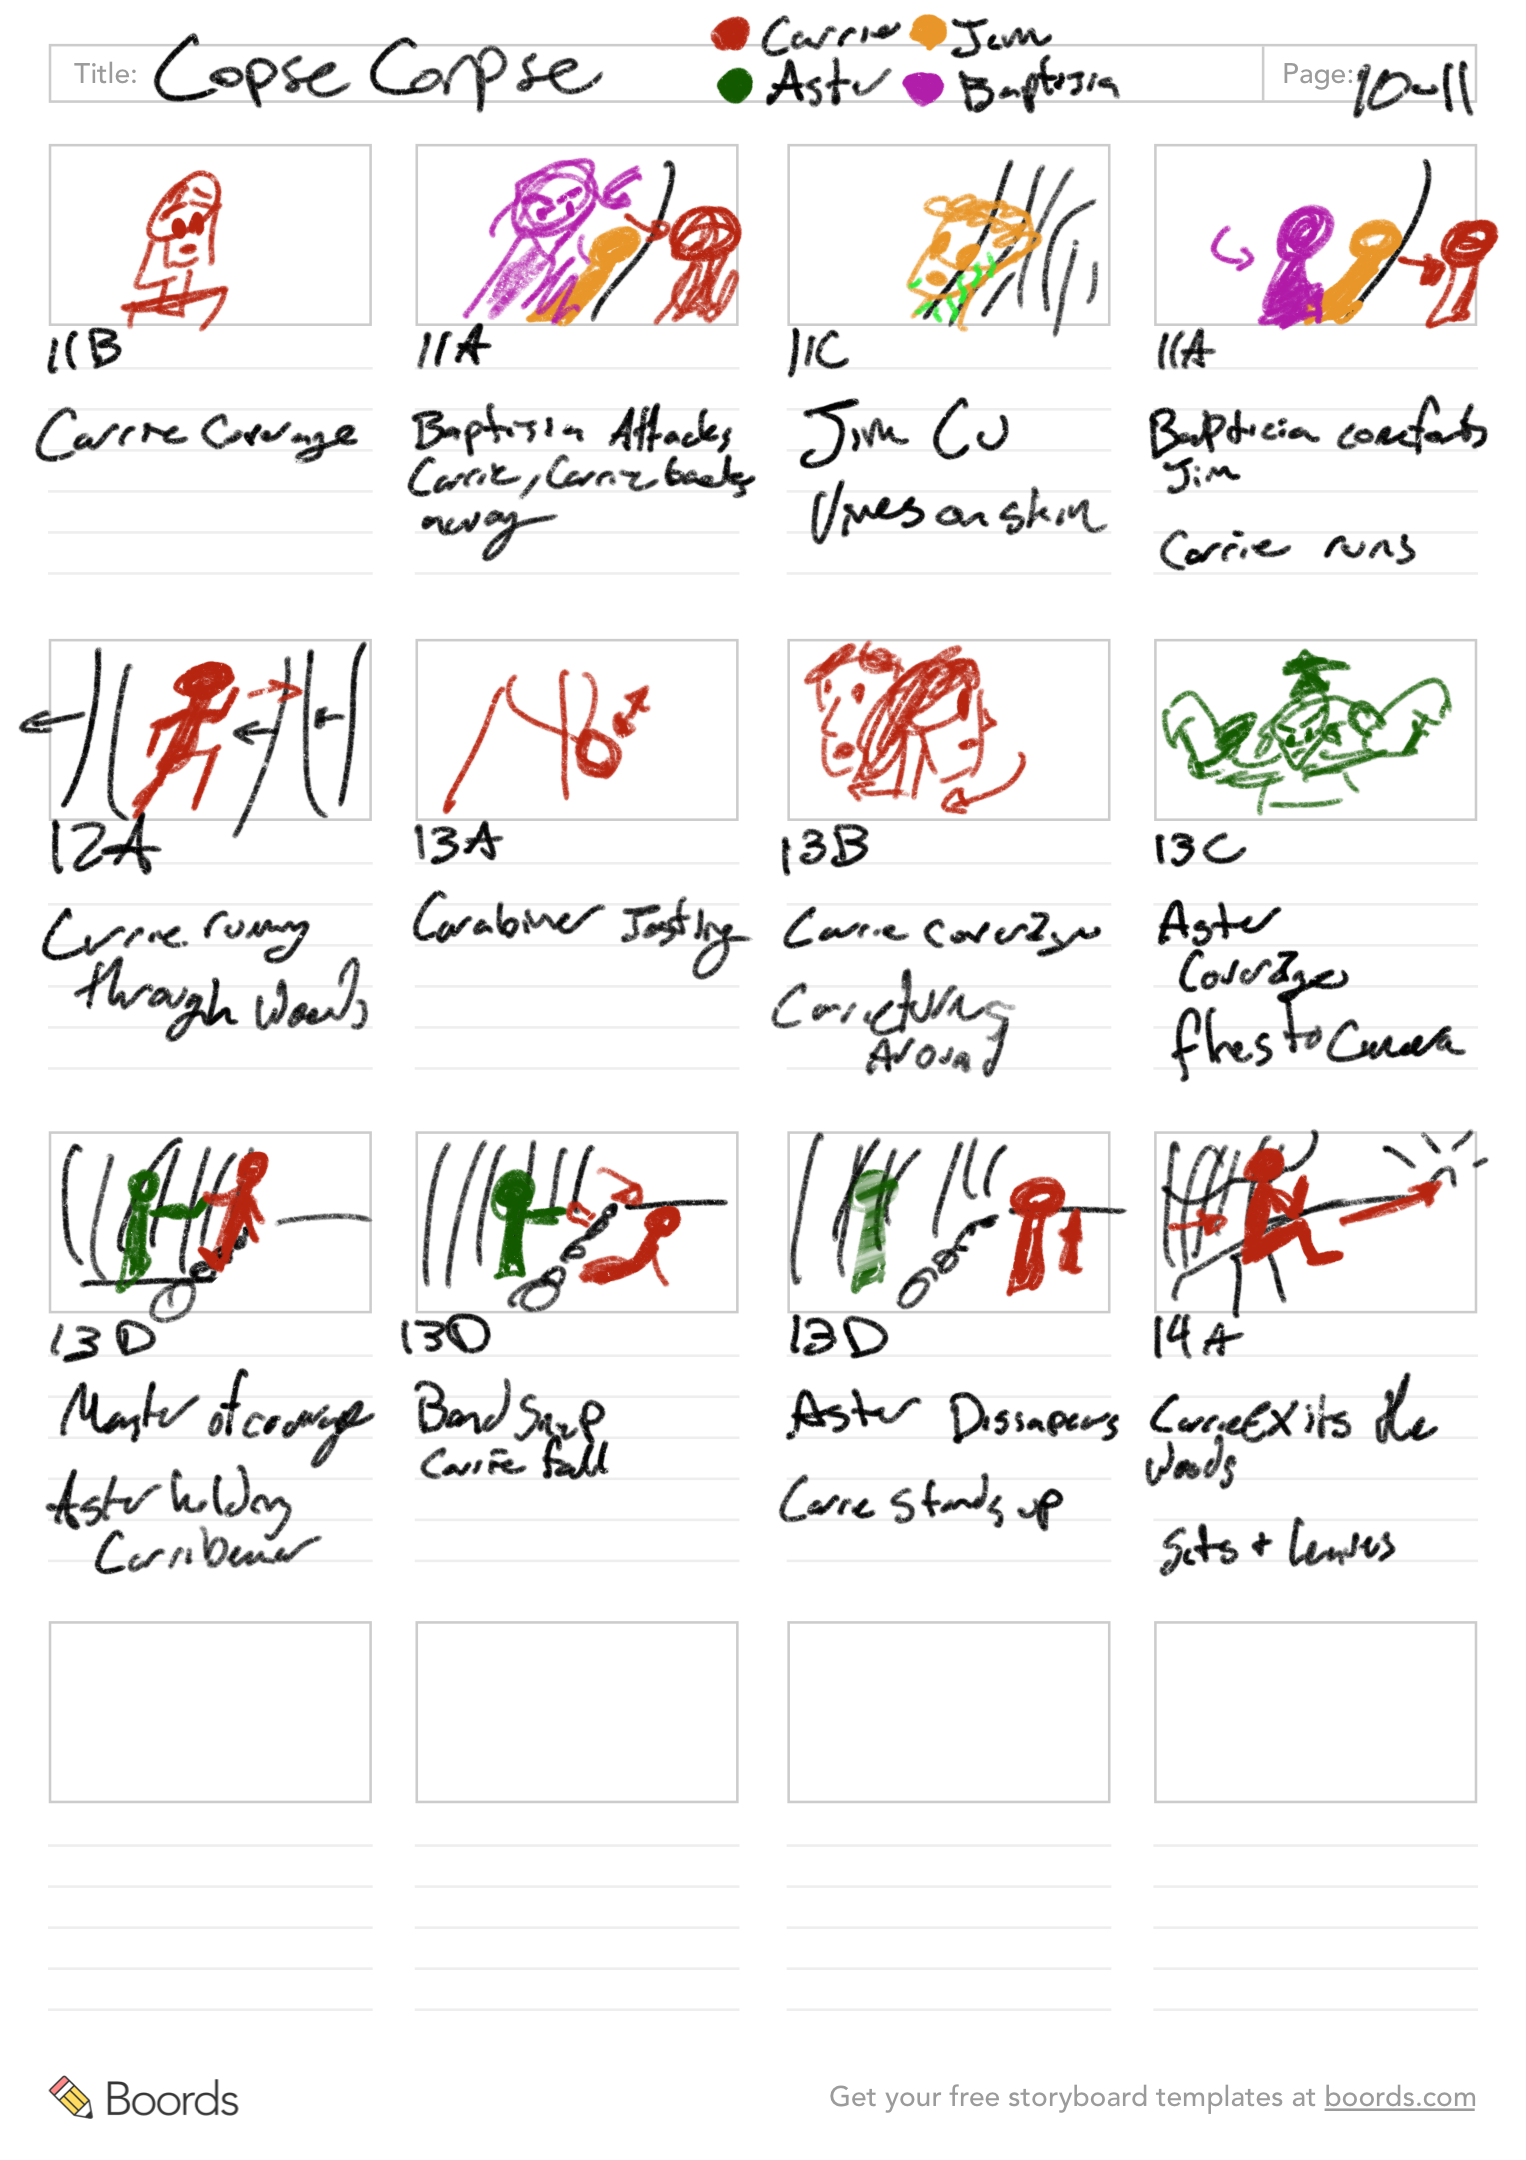 Title: Copse Corpse
Carrie Jim
Aster Baptisia
Page: 10-11
11B
Carrie Coverage
11A
Baptisia Attacks
Carrie, Carrie backs
away
11C
Jim CU
Vines on skin
11A
Bapticia comforts
Jim
Carrie runs
12A
Carrie running
through Woods
13A
Carabiner Jostling
13B
Carrie coverage
Carrie turning
Around
13C
Aster
Coverage
flies to Camera
13D
Master of coverage
Aster holding
Carribener
13D
Band Snap
Carrie fall
13D
Aster Dissapears
Carrie stands up
14A
Carrie Exits the
woods
gets + leaves
Boords
Get your free storyboard templates at boords.com